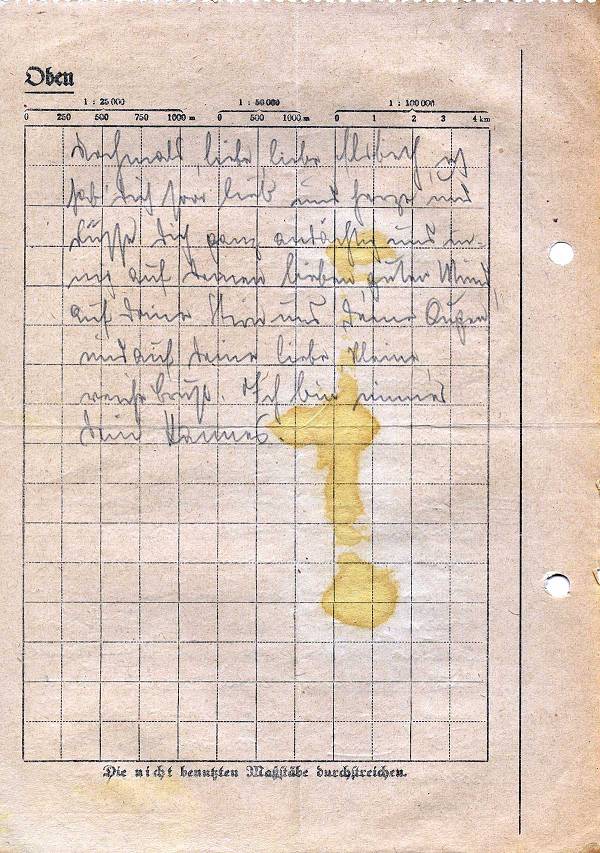 Oben
1 : 25 000 1 : 50 000 1 : 100 000
0 250 500 750 1000 m 0 500 1000 m 0 1 2 3 4 km
Nochmals, liebe, liebe
hab' dich sehr lieb und herze und
küsse dich ganz andächtig und in-
nig auf deinen lieben guten Mund,
auf deine Stirn und deine Augen
und auf deine liebe kleine
Brust. Ich bin immer
dein Hannes.
Die nicht benutzten Maßstäbe durchstreichen.